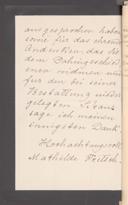 ausgesprochen haben
sowie für das ehrende
Andenken das Sie
dem Dahingeschie
denen widmen und
für den bei seiner
Bestattung nieder
gelegten Kranz
sage ich meinen
innigsten Dank.
Hochachtungsvoll
Mathilde